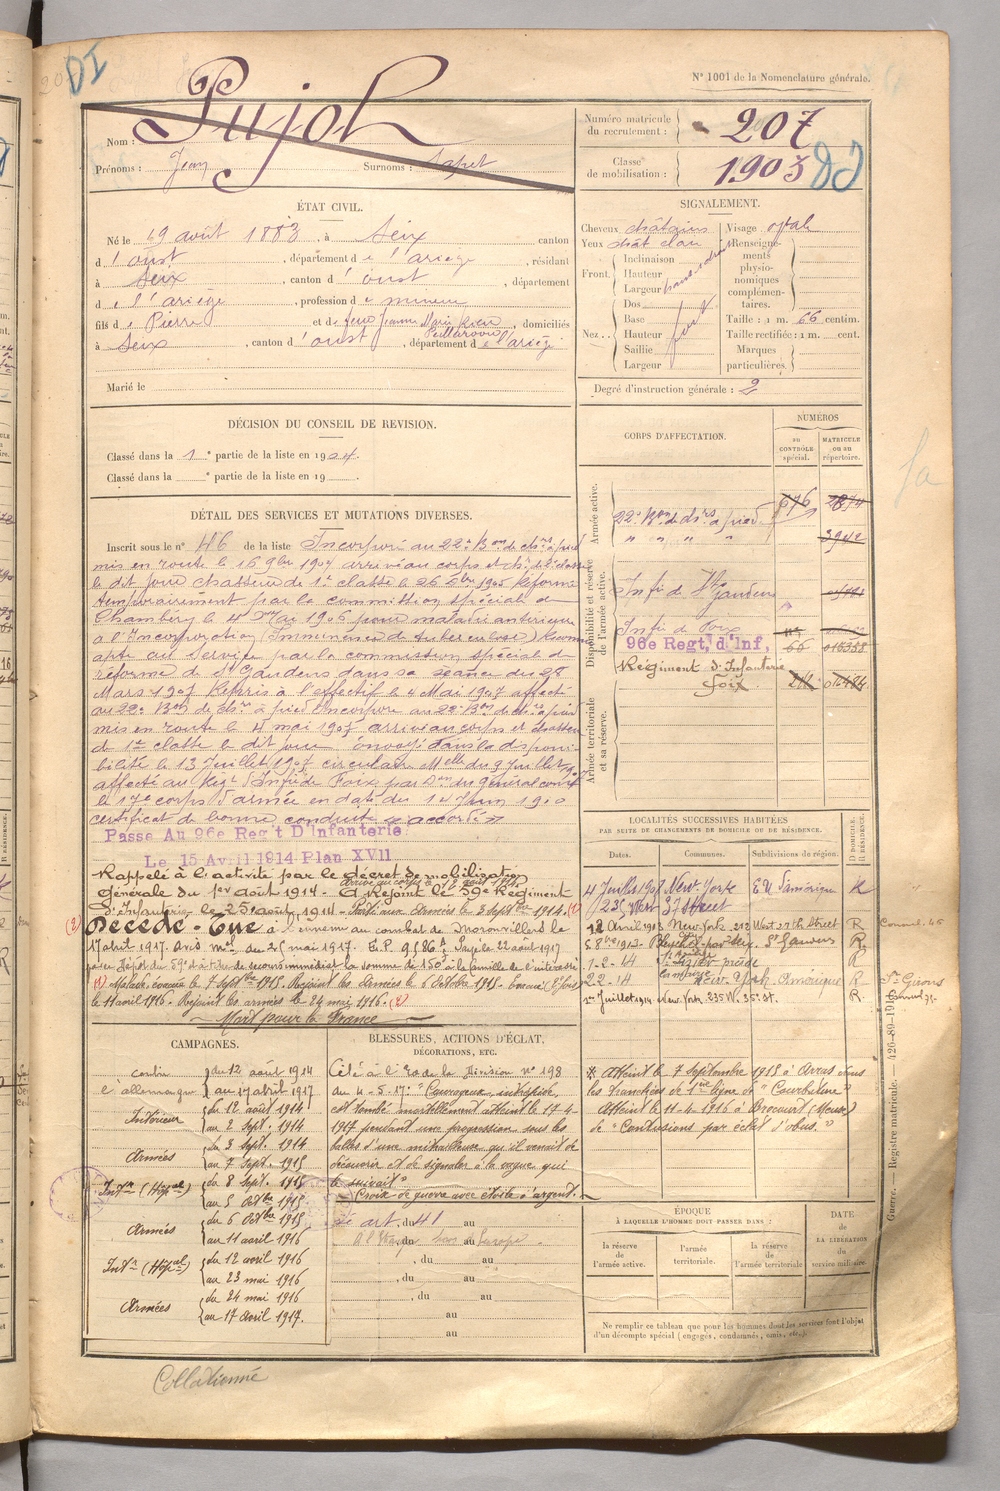 DI
N° 1001 de la Nomenclature générale.
Nom : Pujol
Prénoms : Jean Surnoms : Sapet
Numéro matricule du recrutement : 207
Classe de mobilisation : 1903
ÉTAT CIVIL.
Né le 19 août 1883, à Seix, canton
d'oust, département de l'ariège, résidant
à Seix, canton d'oust, département
de l'ariège, profession de mineur
fils de Pierre et de feue Jeanne Marie Rieu, domiciliés
à Seix, canton d'oust, département de l'ariège
Marié le
SIGNALEMENT.
Cheveux châtains Visage ovale
Yeux chât clair Renseignements physionomiques complémentaires.
Front. Inclinaison
Hauteur
Largeur
Nez. Dos
Base fort
Hauteur
Saillie
Largeur
Taille : 1 m. 66 centim.
Taille rectifiée : 1 m. cent.
Marques particulières.
Degré d'instruction générale : 2
DÉCISION DU CONSEIL DE REVISION.
Classé dans la 1e partie de la liste en 1904.
Classé dans la e partie de la liste en 19
CORPS D'AFFECTATION.
NUMÉROS
au CONTRÔLE spécial.
MATRICULE ou au répertoire.
Armée active.
22e Bon de chrs à pied 676 2874
" " " " 3942
Disponibilité et réserve de l'armée active.
Infie de St Gaudens
Infie de Foix
96e Regt, d'Inf, 66 016358
Régiment d'Infanterie
Foix 211
Armée territoriale et sa réserve.
DÉTAIL DES SERVICES ET MUTATIONS DIVERSES.
Inscrit sous le n° 46 de la liste Incorporé au 22e Bon de chrs à pied
mis en route le 16 9bre 1904 arrivé au corps et chr de 2e classe
le dit jour chasseur de 1e classe le 26 1905 Réformé
temporairement par la commission spéciale de
Chambéry le 4 1906 pour maladie antérieure
à l'Incorporation (Imminence de tuberculose) Reconnu
apte au service par la commission spéciale de
réforme de St Gaudens dans sa séance du 28
Mars 1907 Repris à l'effectif le 4 Mai 1907 affecté
au 22e Bon de chrs à pied Incorporé au 22e Bon de chrs à pied
mis en route le 4 mai 1907 arrivé au corps et chasseur
de 1e classe le dit jour envoyé dans la disponi-
bilité le 13 Juillet 1907 circulaire Melle du 9 juillet 1907
affecté au Regt d'Infie de Foix par Don du général comt
le 17e corps d'armée en date du 14 Juin 1910
certificat de bonne conduite "accordé"
Passe Au 96e Reg't D'Infanterie
Le 15 Avril 1914 Plan XVll
Rappelé à l'activité par le décret de mobilisation
générale du 1er août 1914 - Arrivé au corps le 12 août 1914. A rejoint le 59e Régiment
d'Infanterie le 25 août 1914 - Parti aux Armées le 3 septbre 1914. (1)
(3) Décédé - Tué à l'ennemi au combat de Moronvilliers le
17 avril 1917. Avis mel du 25 mai 1917. E.P. 9586 A. Payé le 22 août 1917
par le Dépôt du 59e à titre de secours immédiat la somme de 150f à la famille de l'intéressé
(1) Malade, évacué le 7 Septbre 1915. Rejoint les Armées le 6 Octobre 1915. Evacué (blessé)
le 11 avril 1916. Rejoint les armées le 24 mai 1916. (2)
Mort pour la France
LOCALITÉS SUCCESSIVES HABITÉES
PAR SUITE DE CHANGEMENTS DE DOMICILE OU DE RÉSIDENCE.
Dates. Communes. Subdivisions de région. D DOMICILE. R RÉSIDENCE.
4 Juillet 1907 New-York E U d'amérique R
235 West 37 Street
12 Avril 1908 New-York. 212 West 37th Street R
1912 St Gaudens R
1-2-14 R
22-2-14 New-York Amérique R St Girons
1er Juillet 1914 New York 235 W. 35e St. R.
CAMPAGNES.
contre l'allemagne du 12 août 1914 au 17 avril 1917
Intérieur du 12 août 1914 au 2 Sept. 1914
Armées du 3 sept. 1914 au 7 Sept. 1915
Intr (Hôpal) du 8 Sept. 1915 au 5 Octbre 1915
Armées du 6 Octbre 1915 au 11 avril 1916
Intr (Hôpal) du 12 avril 1916 au 23 mai 1916
Armées du 24 mai 1916 au 17 Avril 1917.
BLESSURES, ACTIONS D'ÉCLAT, DÉCORATIONS, ETC.
Cité à l'Ordre de la Division n° 198
du 4-5-17: "Courageux, intrépide,
est tombé mortellement atteint le 17-4-
1917 pendant une progression sous les
balles d'une mitrailleuse qu'il venait de
découvrir et de signaler à la vague qui
le suivait"
Croix de guerre avec étoile d'argent.
art. du 41 au
du au Europe
, du au
, du au
, du au
au
au
Atteint le 7 septembre 1915 à Arras dans
les tranchées de 1ère ligne de "Courbature"
Atteint le 11-4-1916 à Brocourt (Meuse)
de "Contusions par éclat d'obus."
ÉPOQUE
À LAQUELLE L'HOMME DOIT PASSER DANS :
la réserve de l'armée active.
l'armée territoriale.
la réserve de l'armée territoriale
DATE de LA LIBÉRATION du service militaire.
Ne remplir ce tableau que pour les hommes dont les services font l'objet
d'un décompte spécial (engagés, condamnés, omis, etc.).
Guerre. — Registre matricule. — 426-89-191
Collationné